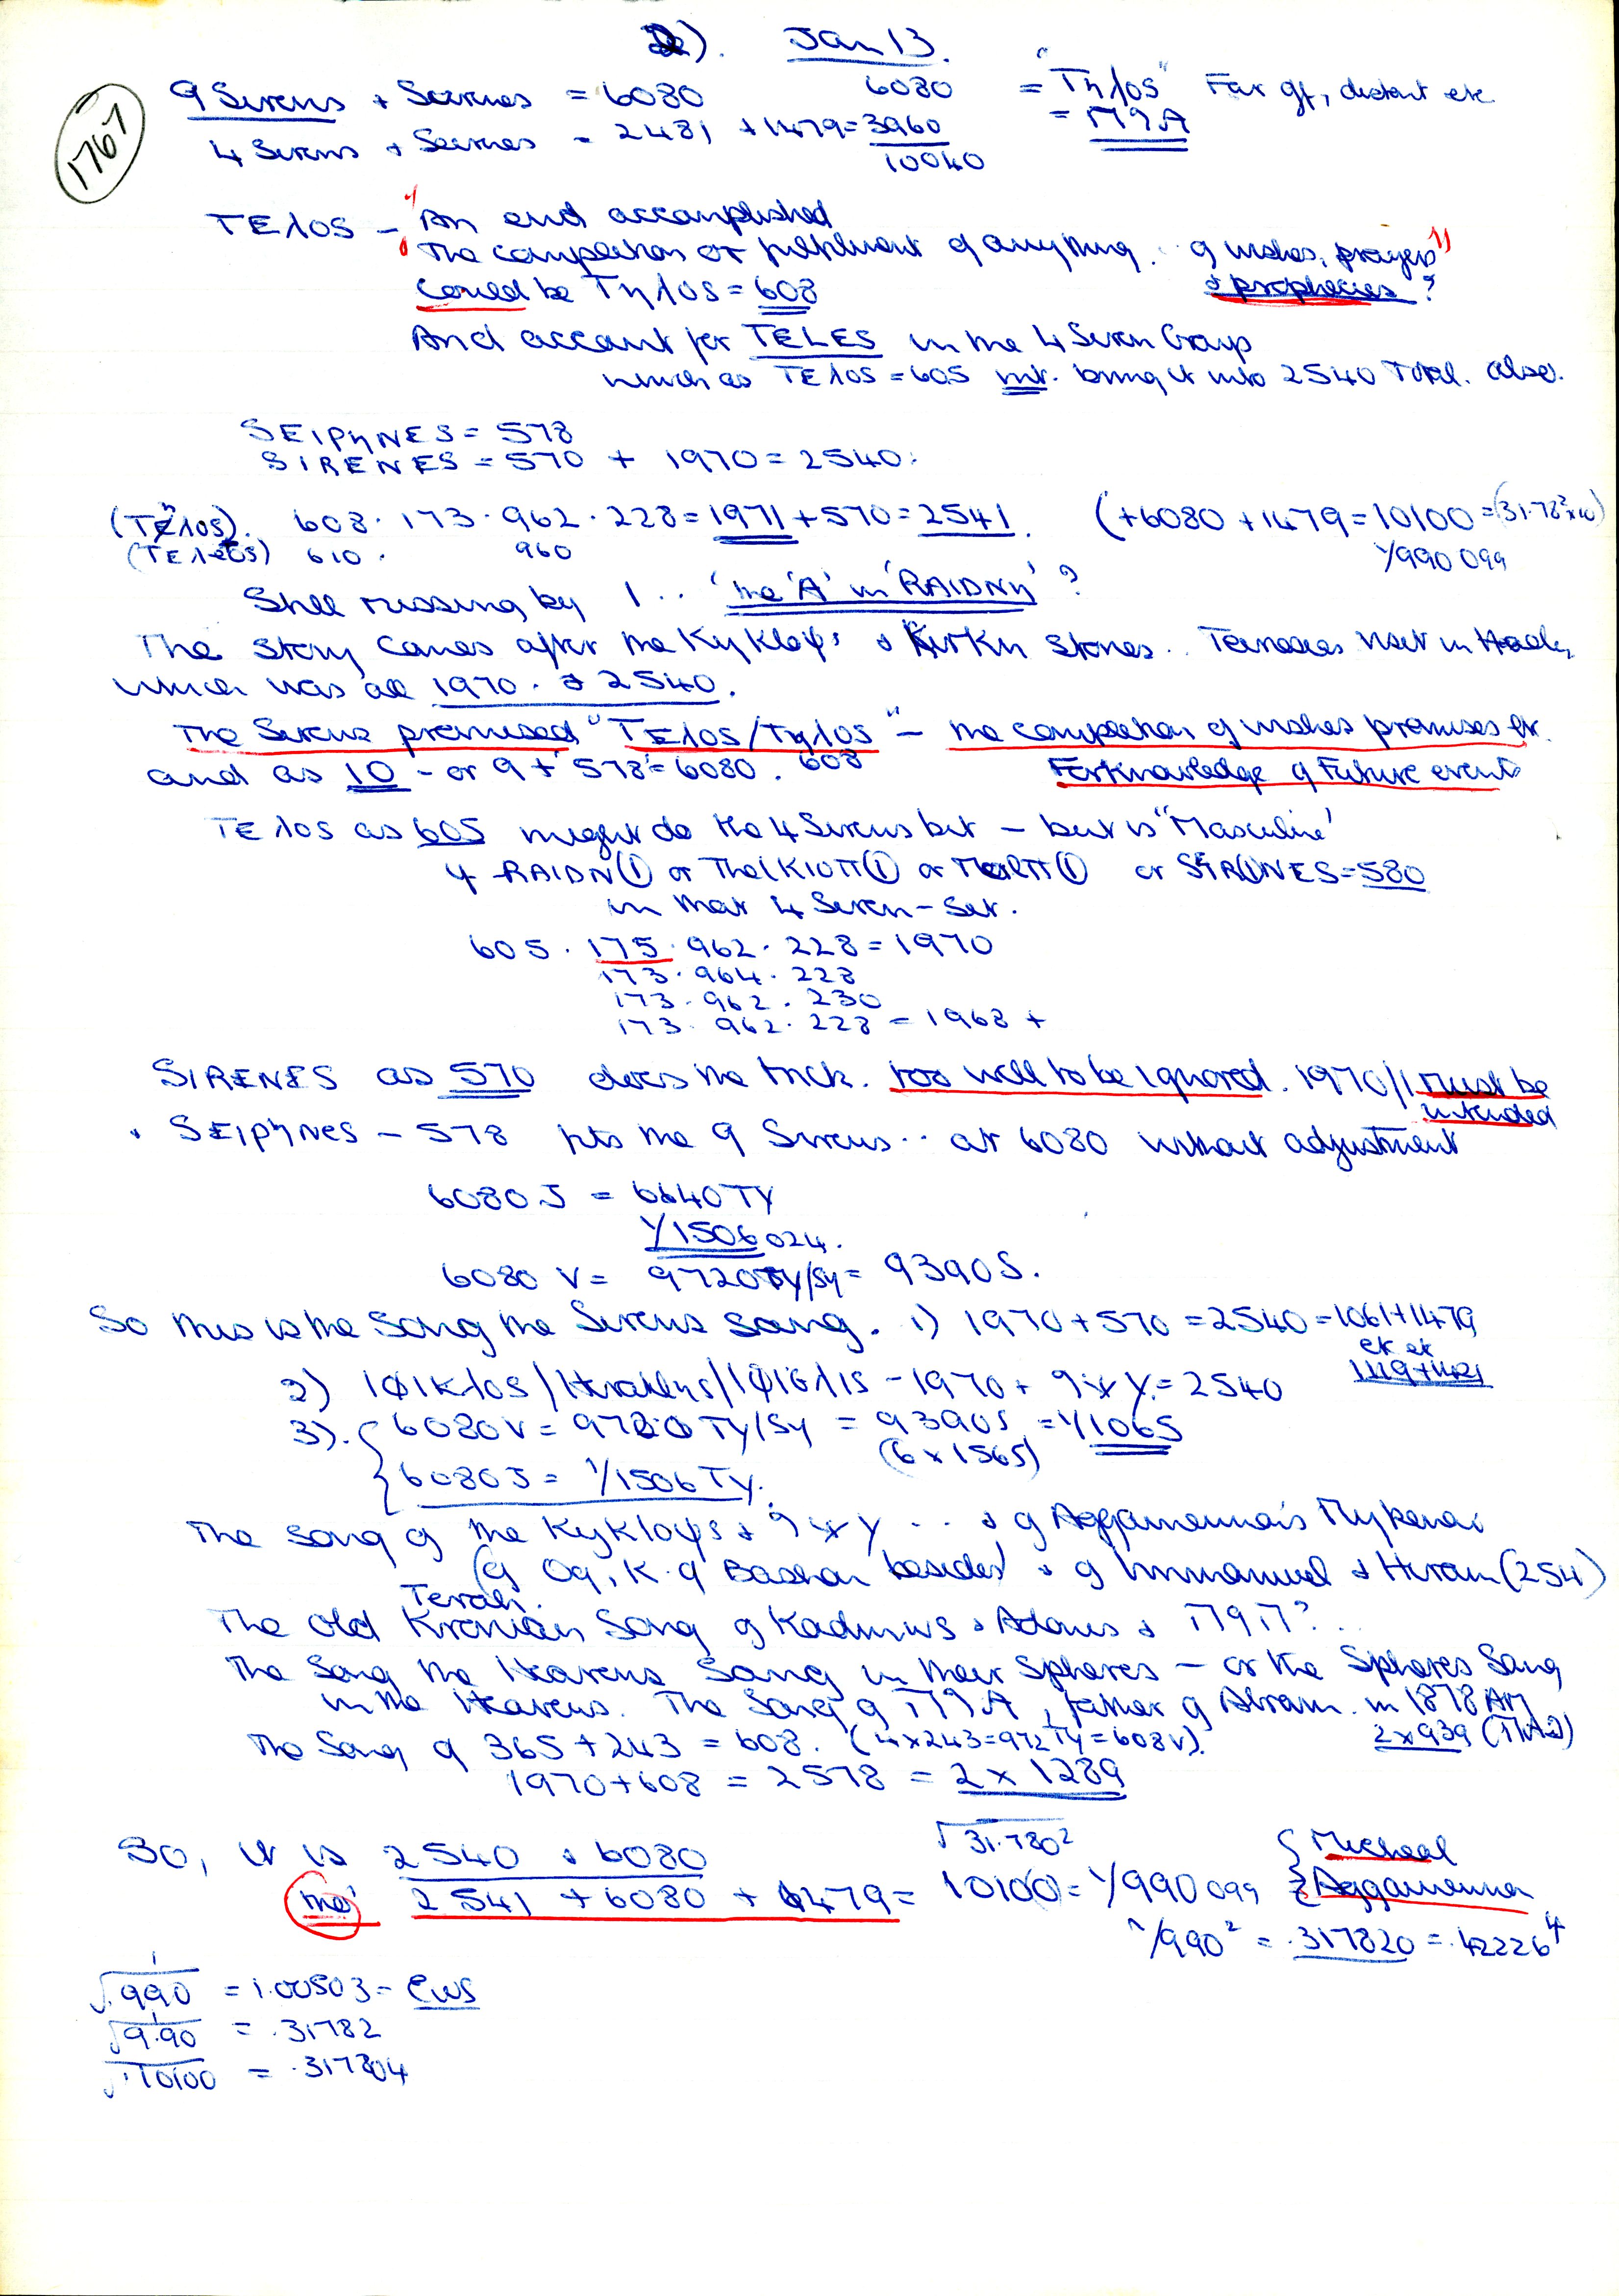 2). Jan 13.
1767
9 Sirens + Seirenes = 6080 6080 = "Tηλos" Far off, distant etc.
4 Sirens + Seirenes = 2481 + 1479 = 3960 =
10040
TEλOS - "An end accomplished
"The completion or fulfilment of anything. of wishes, prayers"
Could be Tηλos = 608 & prophecies?
And account for TELES in the 4 Siren Group
which as TEλOS = 605 bring it into 2540 Total. also.
SEIPηNES = 578
SIRENES = 570 + 1970 = 2540.
608 · 173 · 962 · 228 = 1971 + 570 = 2541. (+6080 + 1479 = 10100 = (31.78² x 10)
610 · 960 1/990 099
Still missing by 1 .. 'the 'A' in 'RAIDNη' ?
The story comes after the Kyklops & Kirkη stories .. Teiresias visit in Hades,
which was all 1970 · & 2540.
The Sirens promised "TEλOS/Tηλos" - the completion of wishes promises etc.
and as 10 - or 9 + 578 = 6080. 608 Forknowledge of Future events
TEλOS as 605 might do the 4 Sirens bit - but is "Masculine"
in that 4 Siren-Set.
605 · 175 · 962 · 228 = 1970
173 · 964 · 228
173 · 962 · 230
173 · 962 · 228 = 1968 +
SIRENES as 570 does the trick. too well to be ignored. 1970/1 must be
intended
· SEIPηNES - 578 puts the 9 Sirens .. at 6080 without adjustment
6080 J = 6640 TY
1/1506 024.
6080 V = 9720 TY/SY = 9390 S.
So this is the Song the Sirens sang. 1) 1970 + 570 = 2540 = 1061 + 1479
2) IΦIKλOS / Heraklηs / - 1970 + = 2540
3). { 6080 V = 9720 TY/SY = 9390 S = 1/1065
(6 x 1565)
{ 6080 J = 1/1506 TY.
The song of the Kyklops & .. & of Aggamemnon's Mykenai
(of Og, K. of Bashan besides) & of Immanuel & Hiram (254)
Terah.
The old Kronian Song of Kadmus & Adonis &
The Song the Heavens Sang in their Spheres - or the Spheres Sang
in the Heavens. The Song of , father of Abram. in 1878 AM
The Song of 365 + 243 = 608. (4 x 243 = 972 TY = 608 V). 2 x 939
1970 + 608 = 2578 = 2 x 1289
√31.780² { Micheal
So, it is 2540 & 6080
the' 2541 + 6080 + 1479 = 10100 = 1/990 099 { Aggamemnon
1/990² = .317820 = .42226⁴
√.990 = 1.00503 -
√9.90 = .31782
√.10100 = .317804